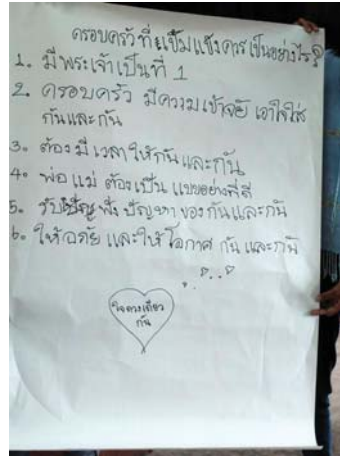 ครอบครัวที่เข้มแข็งควรเป็นอย่างไร?
1. มีพระเจ้าเป็นที่ 1
2. ครอบครัว มีความเข้าใจ เอาใจใส่
กันและกัน
3. ต้องมีเวลาให้กันและกัน
4. พ่อแม่ ต้องเป็น แบบอย่างที่ดี
5. รับ ฟัง ปัญหา ของกันและกัน
6. ให้อภัย และให้โอกาศ กันและกัน
ใจดวงเดียว
กัน